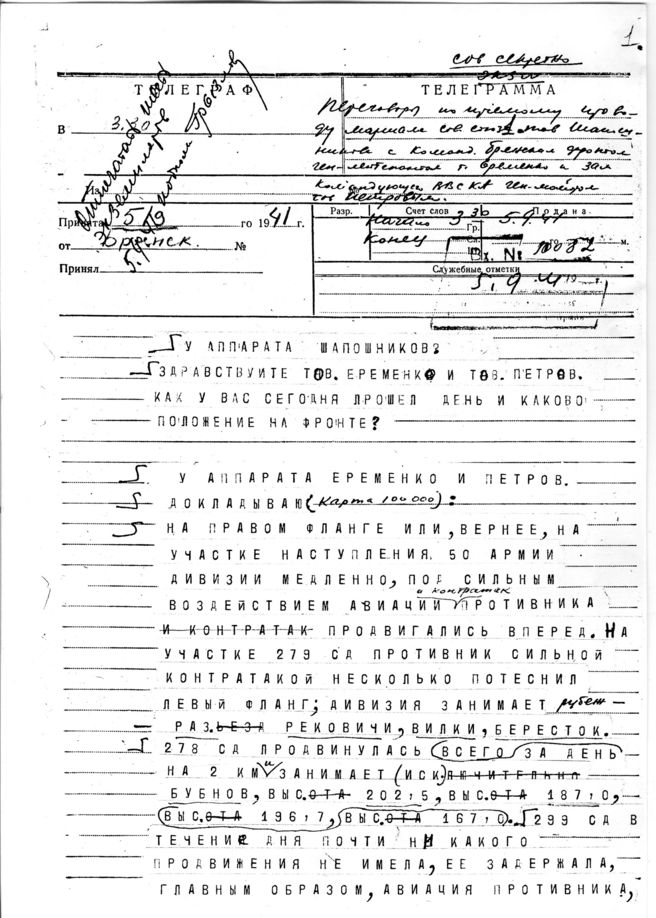 1.
сов секретно
ТЕЛЕГРАФ
ТЕЛЕГРАММА
Переговоры по прямому прово-
ду маршала сов союза тов Шапош-
никова с Команд. Брянским фронтом
ген-лейтенантом т. Еременко и зам
командующего ВВС КА ген-майором
тов Петровым.
В
Разр.
Счет слов
Подана
Начало 3 30
5.9.41
Гр.
Конец
м.
Вх. №
Служебные отметки
5/IX го 1941 г.
от Брянск. №
Принял
У АППАРАТА ШАПОШНИКОВ?
ЗДРАВСТВУЙТЕ ТОВ. ЕРЕМЕНКО И ТОВ. ПЕТРОВ.
КАК У ВАС СЕГОДНЯ ПРОШЕЛ ДЕНЬ И КАКОВО
ПОЛОЖЕНИЕ НА ФРОНТЕ?
У АППАРАТА ЕРЕМЕНКО И ПЕТРОВ.
ДОКЛАДЫВАЮ (карта 100000):
НА ПРАВОМ ФЛАНГЕ ИЛИ, ВЕРНЕЕ, НА
УЧАСТКЕ НАСТУПЛЕНИЯ 50 АРМИИ
ДИВИЗИИ МЕДЛЕННО, ПОД СИЛЬНЫМ
и контратак
ВОЗДЕЙСТВИЕМ АВИАЦИИ ПРОТИВНИКА
И КОНТРАТАК ПРОДВИГАЛИСЬ ВПЕРЕД. НА
УЧАСТКЕ 279 СД ПРОТИВНИК СИЛЬНОЙ
КОНТРАТАКОЙ НЕСКОЛЬКО ПОТЕСНИЛ
ЛЕВЫЙ ФЛАНГ; ДИВИЗИЯ ЗАНИМАЕТ рубеж
РАЗ.ЬЕЗД РЕКОВИЧИ, ВИЛКИ, БЕРЕСТОК.
278 СД ПРОДВИНУЛАСЬ (ВСЕГО ЗА ДЕНЬ
НА 2 КМ и ЗАНИМАЕТ (ИСК)ЛЮЧИТЕЛЬНО
БУБНОВ, ВЫС.ОТА 202,5, ВЫС.ОТА 187,0,
ВЫС.ОТА 196,7, ВЫС.ОТА 167,0. 299 СД В
ТЕЧЕНИЕ ДНЯ ПОЧТИ НИ КАКОГО
ПРОДВИЖЕНИЯ НЕ ИМЕЛА, ЕЕ ЗАДЕРЖАЛА,
ГЛАВНЫМ ОБРАЗОМ, АВИАЦИЯ ПРОТИВНИКА,